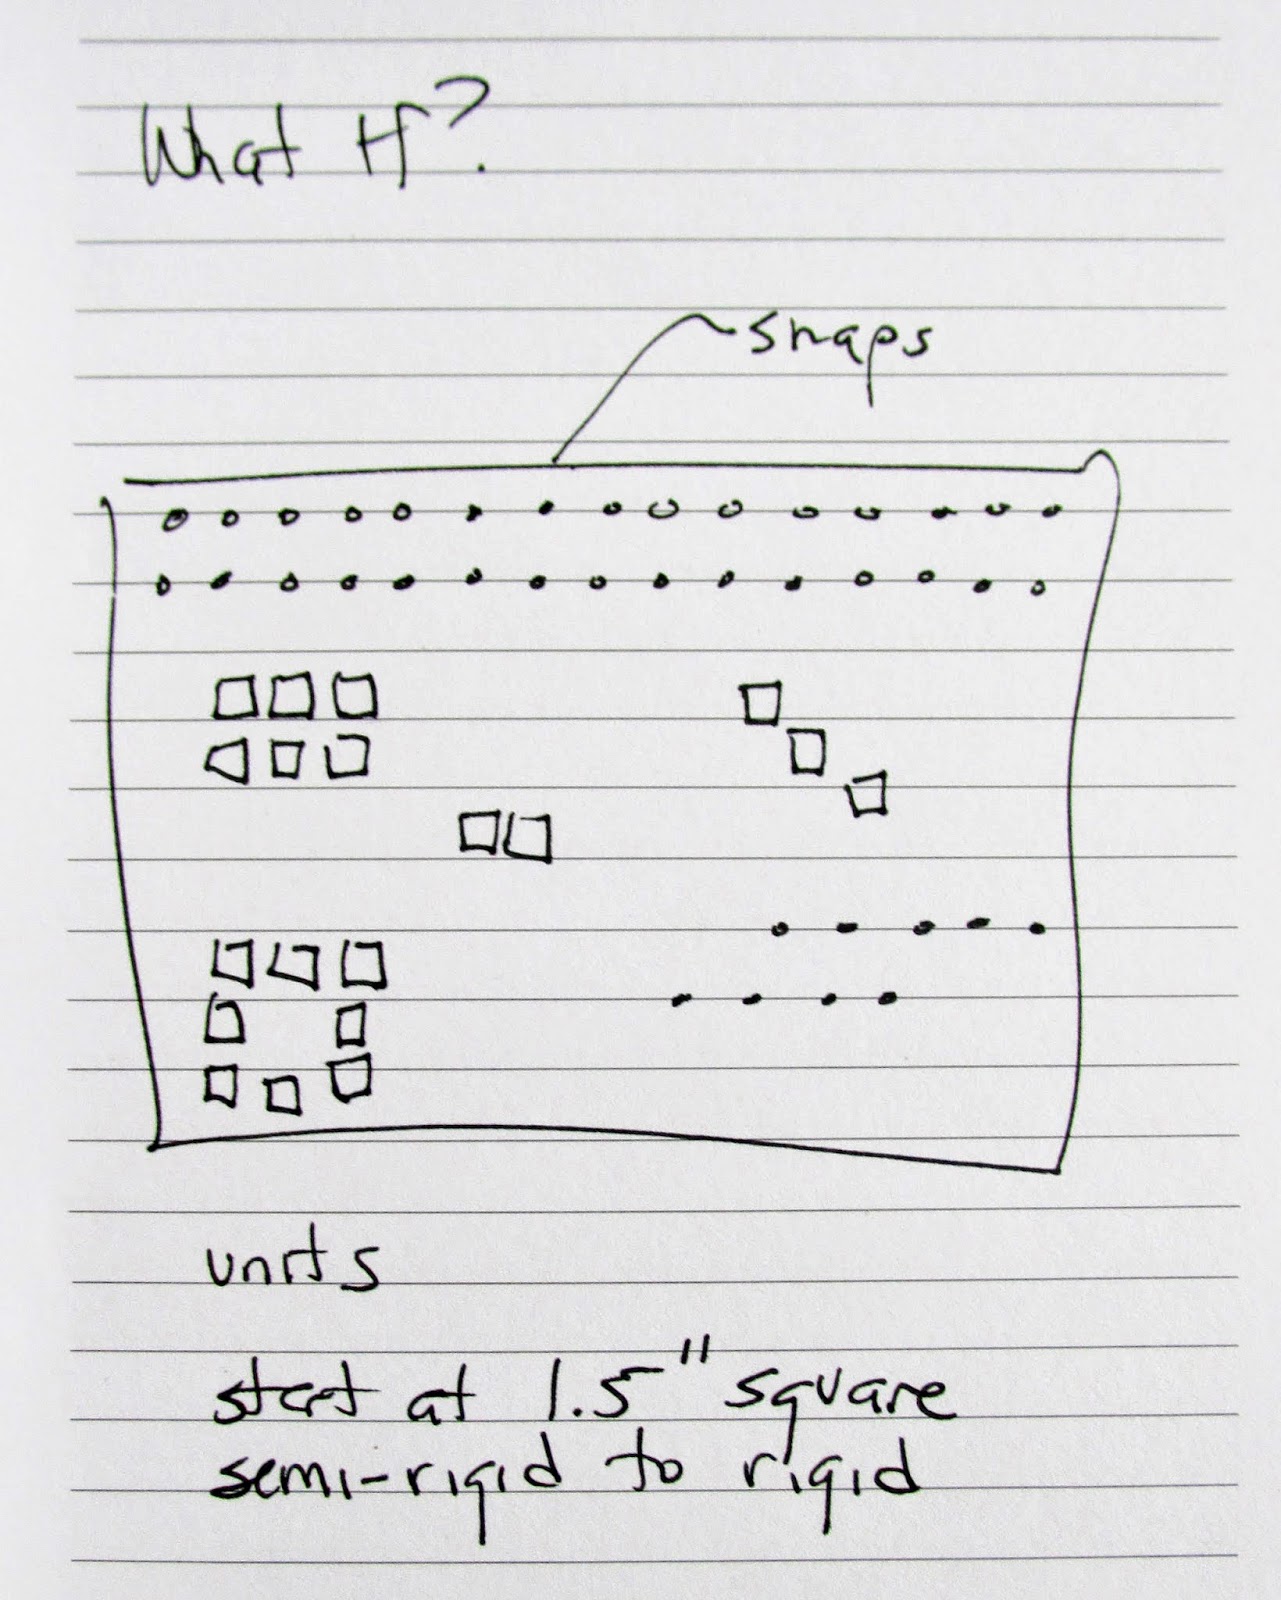 What If?
snaps
units
start at 1.5" square
semi-rigid to rigid